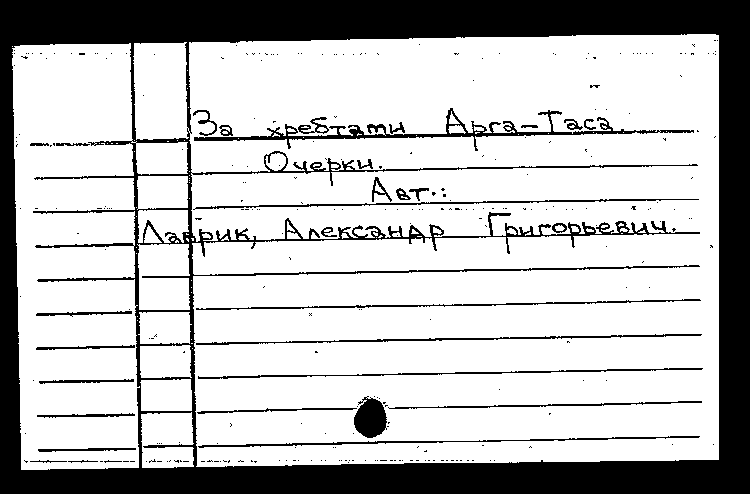 За хребтами Арга-Таса.
Очерки.
Авт.:
Лаврик, Александр Григорьевич.